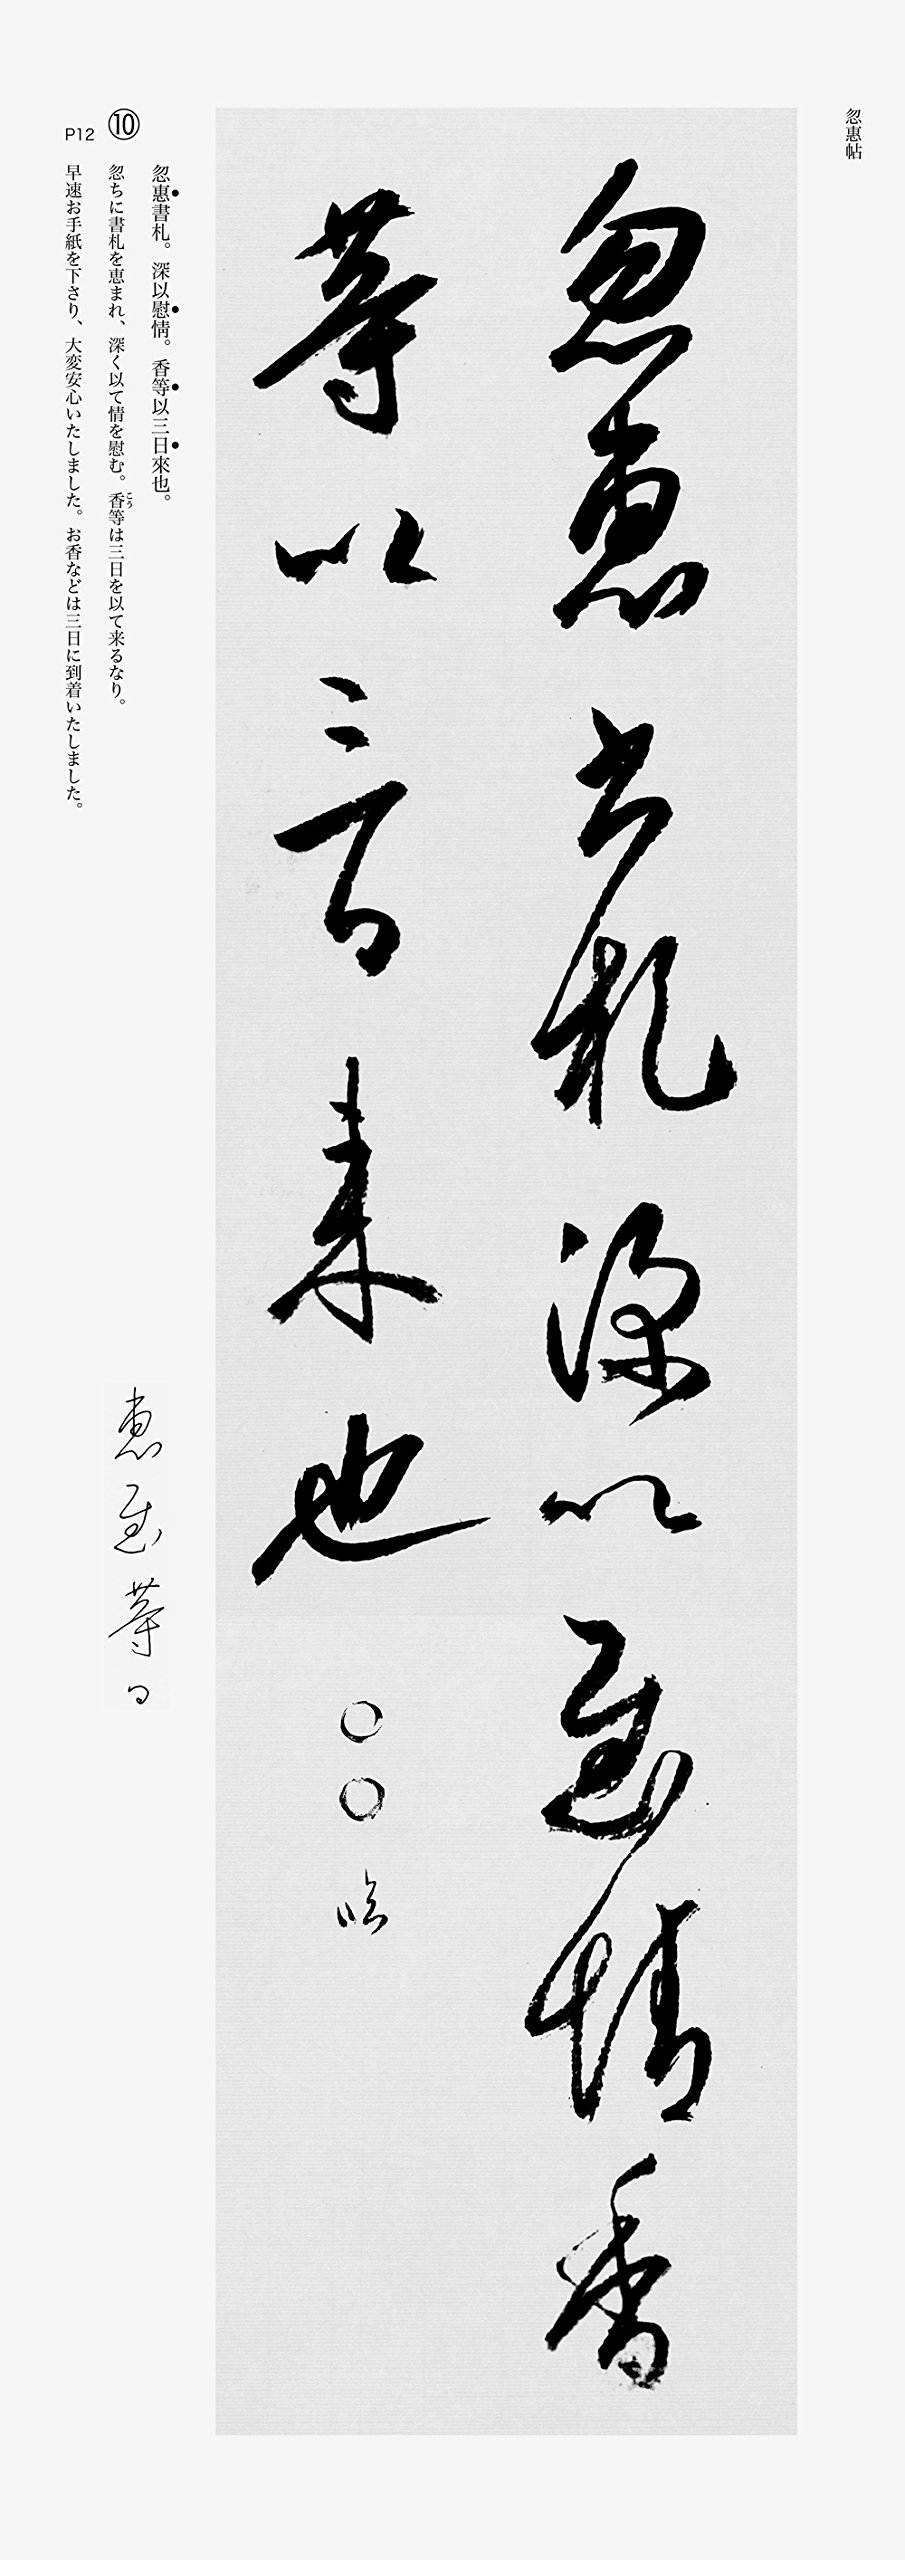 忽惠帖
忽惠書札深以慰情香
等以三日来也
○○臨
忽惠書札。深以慰情。香等以三日來也。
⑩
忽ちに書札を恵まれ、深く以て情を慰む。香等は三日を以て来るなり。
こう
P12
早速お手紙を下さり、大変安心いたしました。お香などは三日に到着いたしました。
惠慰等日